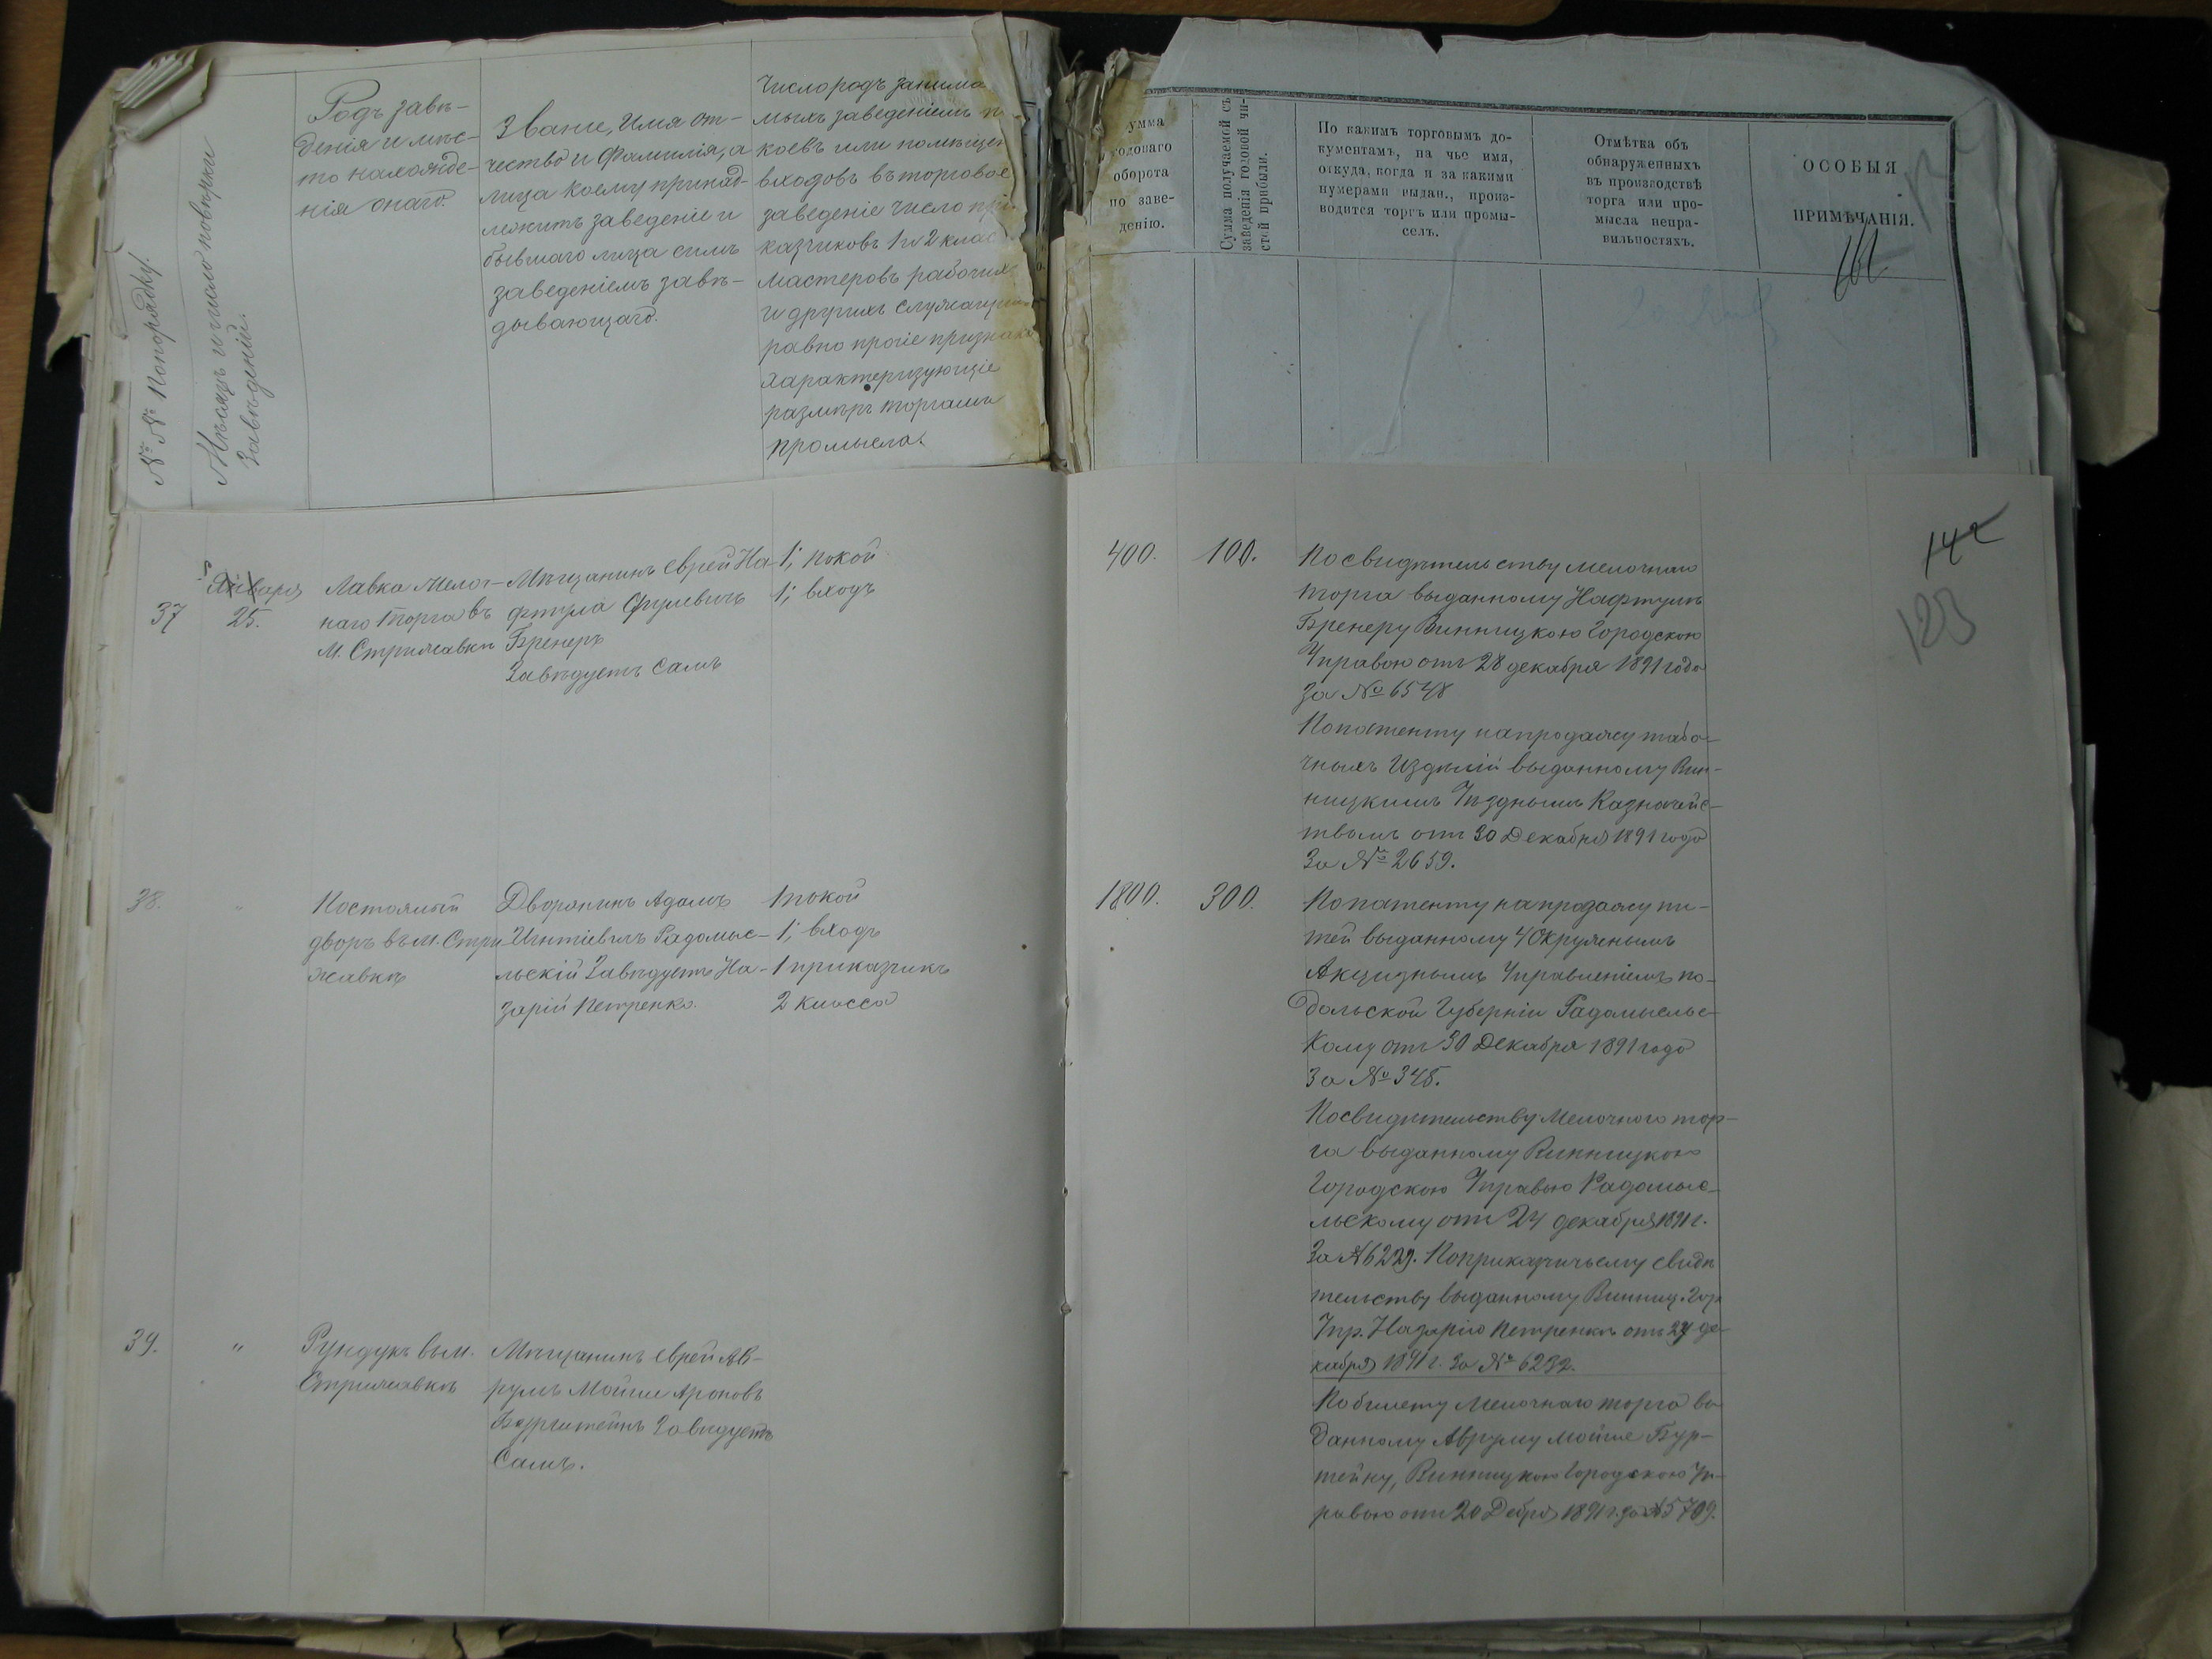 № № По порядку.
Мѣсяцъ и число повѣрки
Завѣденій.
Родъ завѣ-
денія и мѣс-
то нахожде-
нія онаго.
Званіе, Имя от-
чество и Фамилія, а
лица коему принад-
лежитъ заведеніе и
бывшаго лица симъ
заведеніемъ завѣ-
дывающаго.
Число родъ занима
мыхъ заведеніемъ п
коевъ или помѣщен
входовъ въ торговое
заведеніе число при
казчиковъ 1 и 2 клас
мастеровъ рабочих
и другихъ служащи
равно прочіе признаки
характеризующіе
размѣръ торга и
промысла.
умма
годоваго
оборота
по заве-
денію.
Сумма получаемой съ
заведенія годовой чи-
стой прибыли.
По какимъ торговымъ до-
кументамъ, на чье имя,
откуда, когда и за какими
нумерами выдан., произ-
водится торгъ или промы-
селъ.
Отмѣтка объ
обнаруженныхъ
въ производствѣ
торга или про-
мысла непра-
вильностяхъ.
ОСОБЫЯ
ПРИМѢЧАНІЯ.
142
123
37
Января
25.
Лавка Мелоч-
наго торга въ
М. Стрижавкѣ
Мѣщанинъ Еврей На-
фтула Сруlевичъ
Бренеръ
Завѣдуетъ Самъ
1; покой
1; входъ
400.
100.
По свидѣтельству мелочнаго
торга выданному Нафтулѣ
Бренеру Винницкою Городскою
Управою отъ 28 декабря 1891 года
За № 6548
По патенту на продажу таба-
чныхъ Издѣлій выданному Вин-
ницкимъ Уѣзднымъ Казначейс-
твомъ отъ 30 Декабря 1891 года
За № 2659.
38.
"
Постоялый
дворъ въ м. Стри
жавкѣ
Дворянинъ Адамъ
Игнтіевичъ Радомыс-
льскій Завѣдуетъ На-
зарій Петренко.
1 покой
1; входъ
1 приказчикъ
2 класса
1800.
300.
По патенту на продажу пи-
тей выданному 4 Окружнымъ
Акцизнымъ Управленіемъ по-
дольской Губерніи Радомысльс-
Кому отъ 30 Декабря 1891 года
За № 345.
По свидѣтельству Мелочнаго тор-
га выданному Винницкою
Городскою Управою Радомыс-
льскому отъ 24 декабря 1891 г.
За № 6229. По приказчичьему свидѣ
тельству выданному Винниц. Гор.
Упр. Назарію Петренкѣ отъ 24 де-
кабря 1891 г. За № 6232.
39.
"
Рундукъ въ м.
Стрижавкѣ
Мѣщанинъ Еврей Ав-
румъ Мойше Ароновъ
Бурштейнъ Завѣдуетъ
Самъ.
По билету Мелочнаго торга вы
данному Авруму Мойше Бур-
тейну, Винницкою Городскою Уп-
равою отъ 20 Дебря 1891 г. за № 5709.